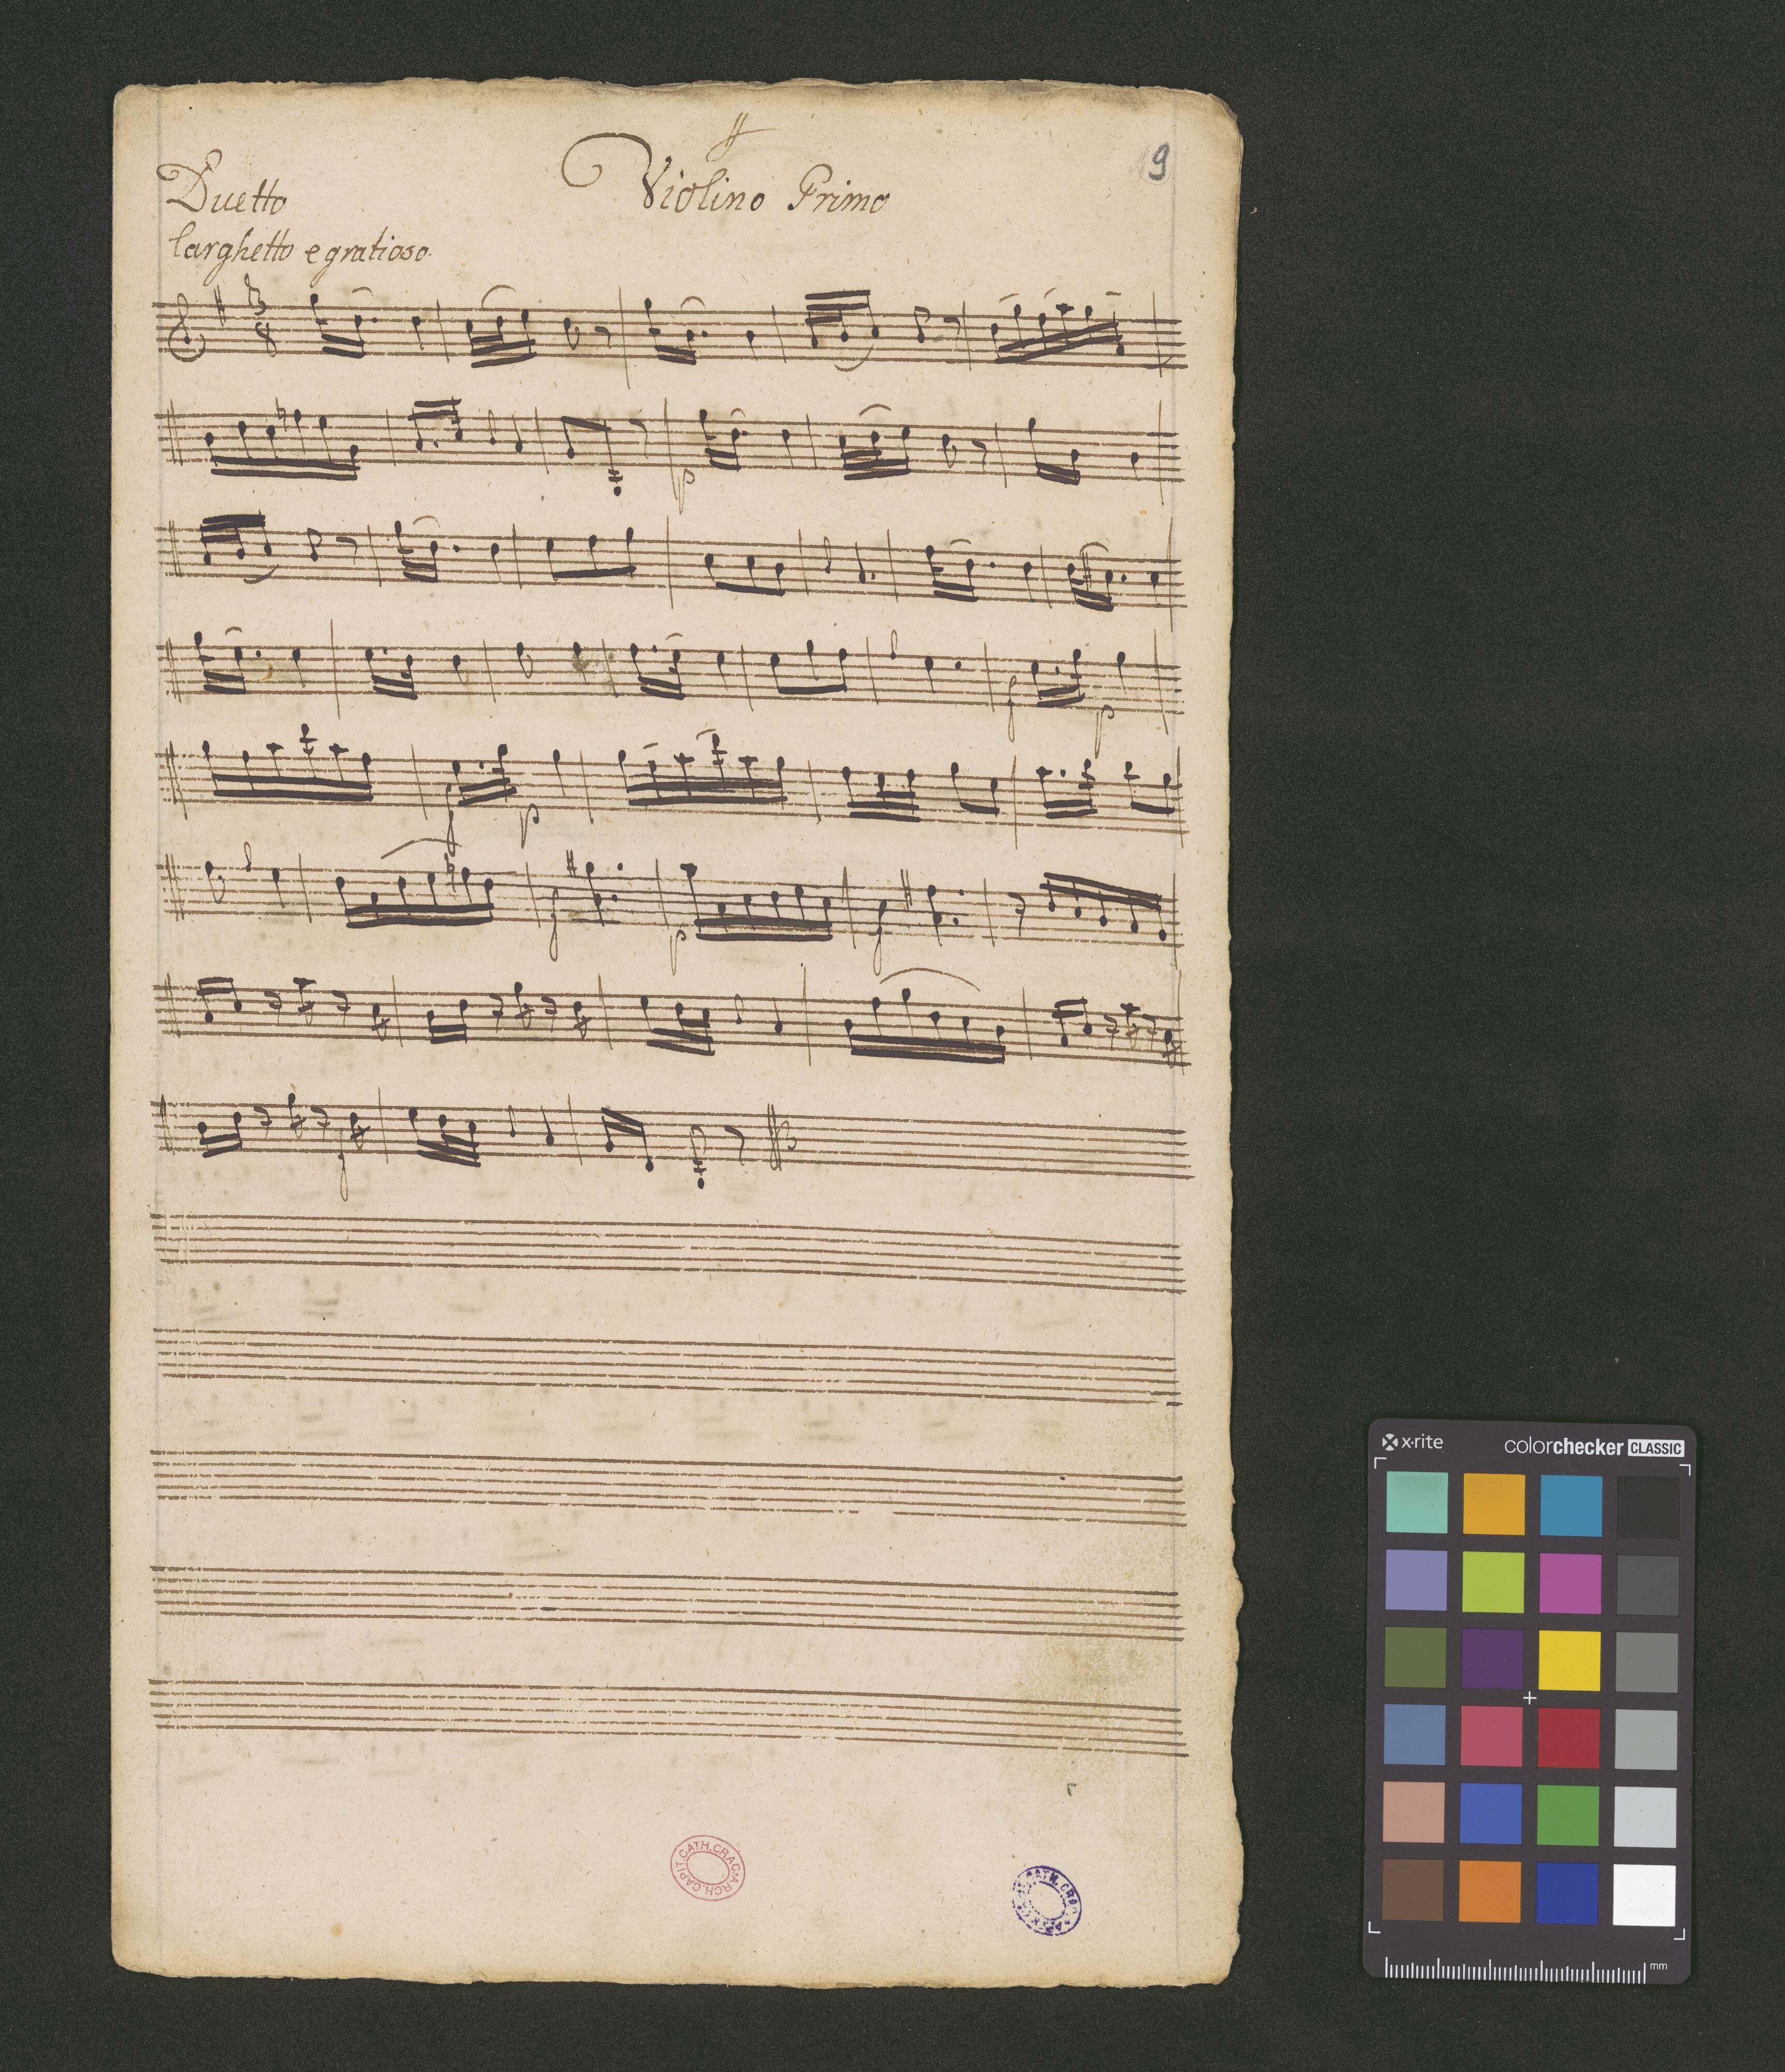 Violino Primo
9
Duetto
larghetto e gratioso.
3
8
p
f
p
f
p
f
p
f
f
ARCH.CAPIT.CATH.CRAC.
CATH. CRAC
x·rite
colorchecker CLASSIC
mm